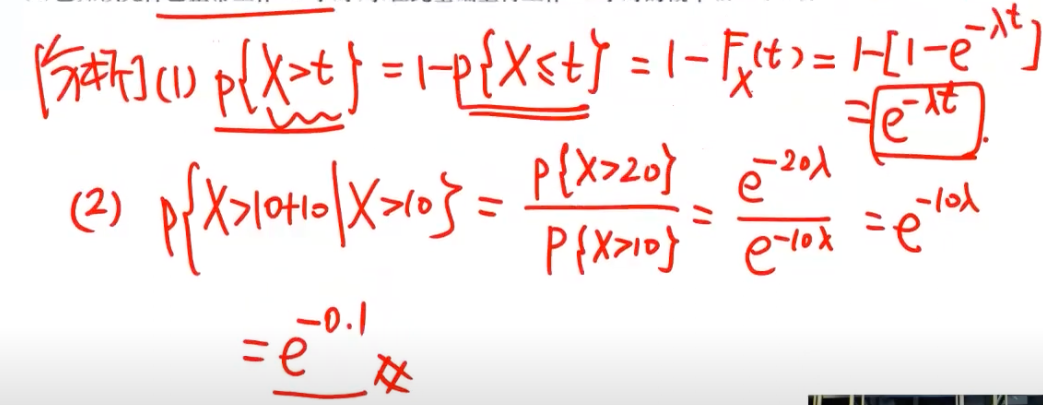 [分析](1) P{X>t} = 1-P{X≤t} = 1-F_X(t) = 1-[1-e^{-λt}]
= e^{-λt}.
(2) P{X>10+10|X>10} = P{X>20} / P{X>10} = e^{-20λ} / e^{-10λ} = e^{-10λ}
= e^{-0.1}